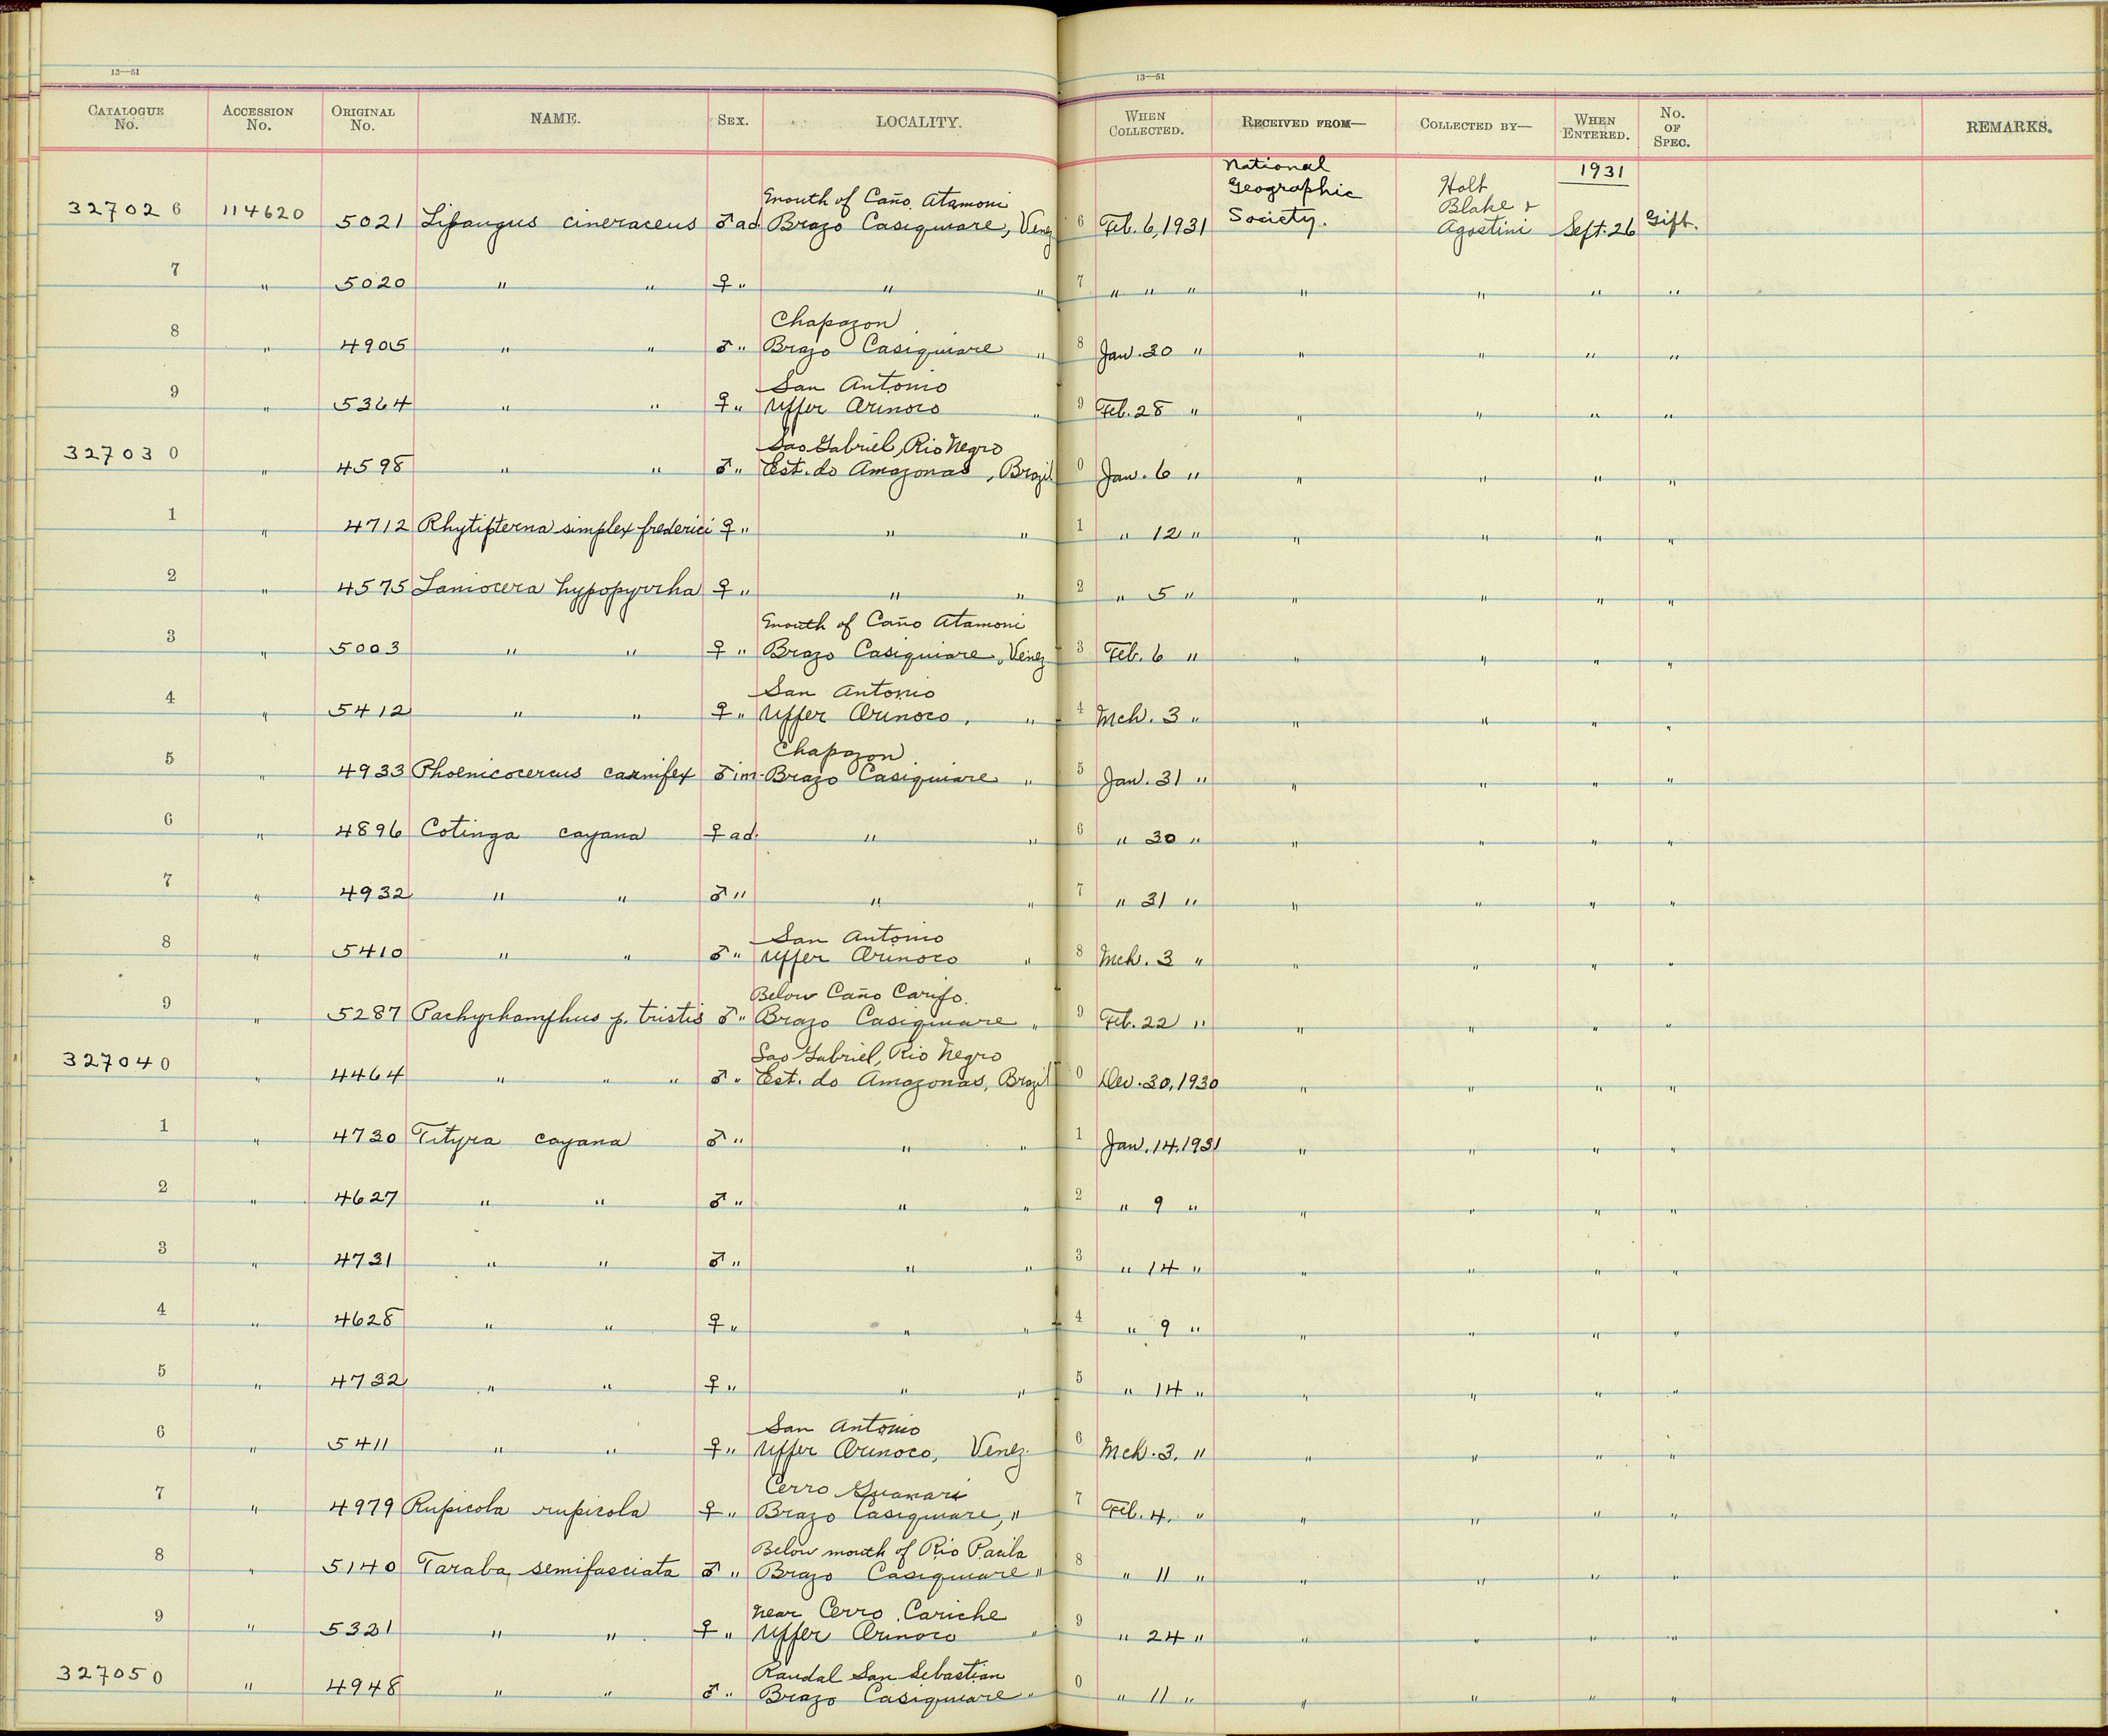 13—51 13—51
CATALOGUE No. ACCESSION No. ORIGINAL No. NAME. SEX. LOCALITY. WHEN COLLECTED. RECEIVED FROM— COLLECTED BY— WHEN ENTERED. No. OF SPEC. REMARKS.
National
Geographic
Society.
Holt
Blake &
Agostini
1931
Mouth of Caño Atamoni
327026 114620 5021 Lipaugus cineraceus ♂ ad. Brazo Casiquiare, Venez 6 Feb. 6, 1931 Sept. 26 Gift.
7 " 5020 " " ♀ " " " 7 " " " " " " "
Chapazon
8 " 4905 " " ♂ " Brazo Casiquiare " 8 Jan. 30 " " " " "
San Antonio
9 " 5364 " " ♀ " Upper Orinoco " 9 Feb. 28 " " " " "
Sao Gabriel, Rio Negro
327030 " 4598 " " ♂ " Est. do Amazonas, Brazil 0 Jan. 6 " " " " "
1 " 4712 Rhytipterna simplex frederici ♀ " " " 1 " 12 " " " " "
2 " 4575 Laniocera hypopyrrha ♀ " " " 2 " 5 " " " " "
Mouth of Caño Atamoni
3 " 5003 " " ♀ " Brazo Casiquiare, Venez 3 Feb. 6 " " " " "
San Antonio
4 " 5412 " " ♀ " Upper Orinoco, " 4 Mch. 3 " " " " "
Chapazon
5 " 4933 Phoenicocercus carnifex ♂ im. Brazo Casiquiare " 5 Jan. 31 " " " " "
6 " 4896 Cotinga cayana ♀ ad. " " 6 " 30 " " " " "
7 " 4932 " " ♂ " " " 7 " 31 " " " " "
San Antonio
8 " 5410 " " ♂ " Upper Orinoco " 8 Mch. 3 " " " " "
Below Caño Caripo.
9 " 5287 Pachyrhamphus p. tristis ♂ " Brazo Casiquiare " 9 Feb. 22 " " " " "
Sao Gabriel, Rio Negro
327040 " 4464 " " " ♂ " Est. do Amazonas, Brazil 0 Dec. 30, 1930 " " " "
1 " 4730 Tityra cayana ♂ " " " 1 Jan. 14, 1931 " " " "
2 " 4627 " " ♂ " " " 2 " 9 " " " " "
3 " 4731 " " ♂ " " " 3 " 14 " " " " "
4 " 4628 " " ♀ " " " 4 " 9 " " " " "
5 " 4732 " " ♀ " " " 5 " 14 " " " " "
San Antonio
6 " 5411 " " ♀ " Upper Orinoco, Venez. 6 Mch. 3. " " " " "
Cerro Guanari
7 " 4979 Rupicola rupicola ♀ " Brazo Casiquiare, " 7 Feb. 4. " " " " "
Below mouth of Rio Pacila
8 " 5140 Taraba semifasciata ♂ " Brazo Casiquiare " 8 " 11 " " " " "
Near Cerro Cariche
9 " 5321 " " ♀ " Upper Orinoco " 9 " 24 " " " " "
Raudal San Sebastian
327050 " 4948 " " ♂ " Brazo Casiquiare " 0 " 11 " " " " "